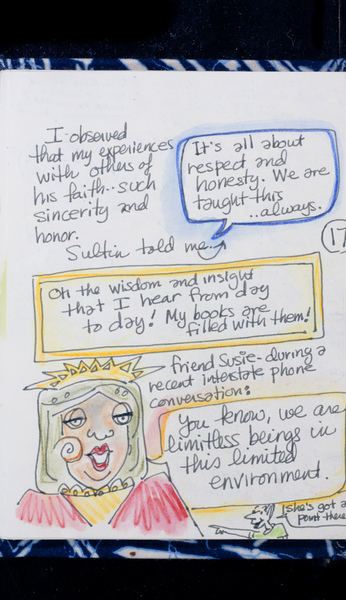 I observed
that my experiences
with others of
his faith.. such
sincerity and
honor.
Sultin told me..
It's all about
respect and
honesty. We are
taught this
..always.
17
Oh the wisdom and insight
that I hear from day
to day! My books are
filled with them!
friend Susie-during a
recent interstate phone
conversation:
You know, we are
limitless beings in
this limited
environment.
she's got a
point there